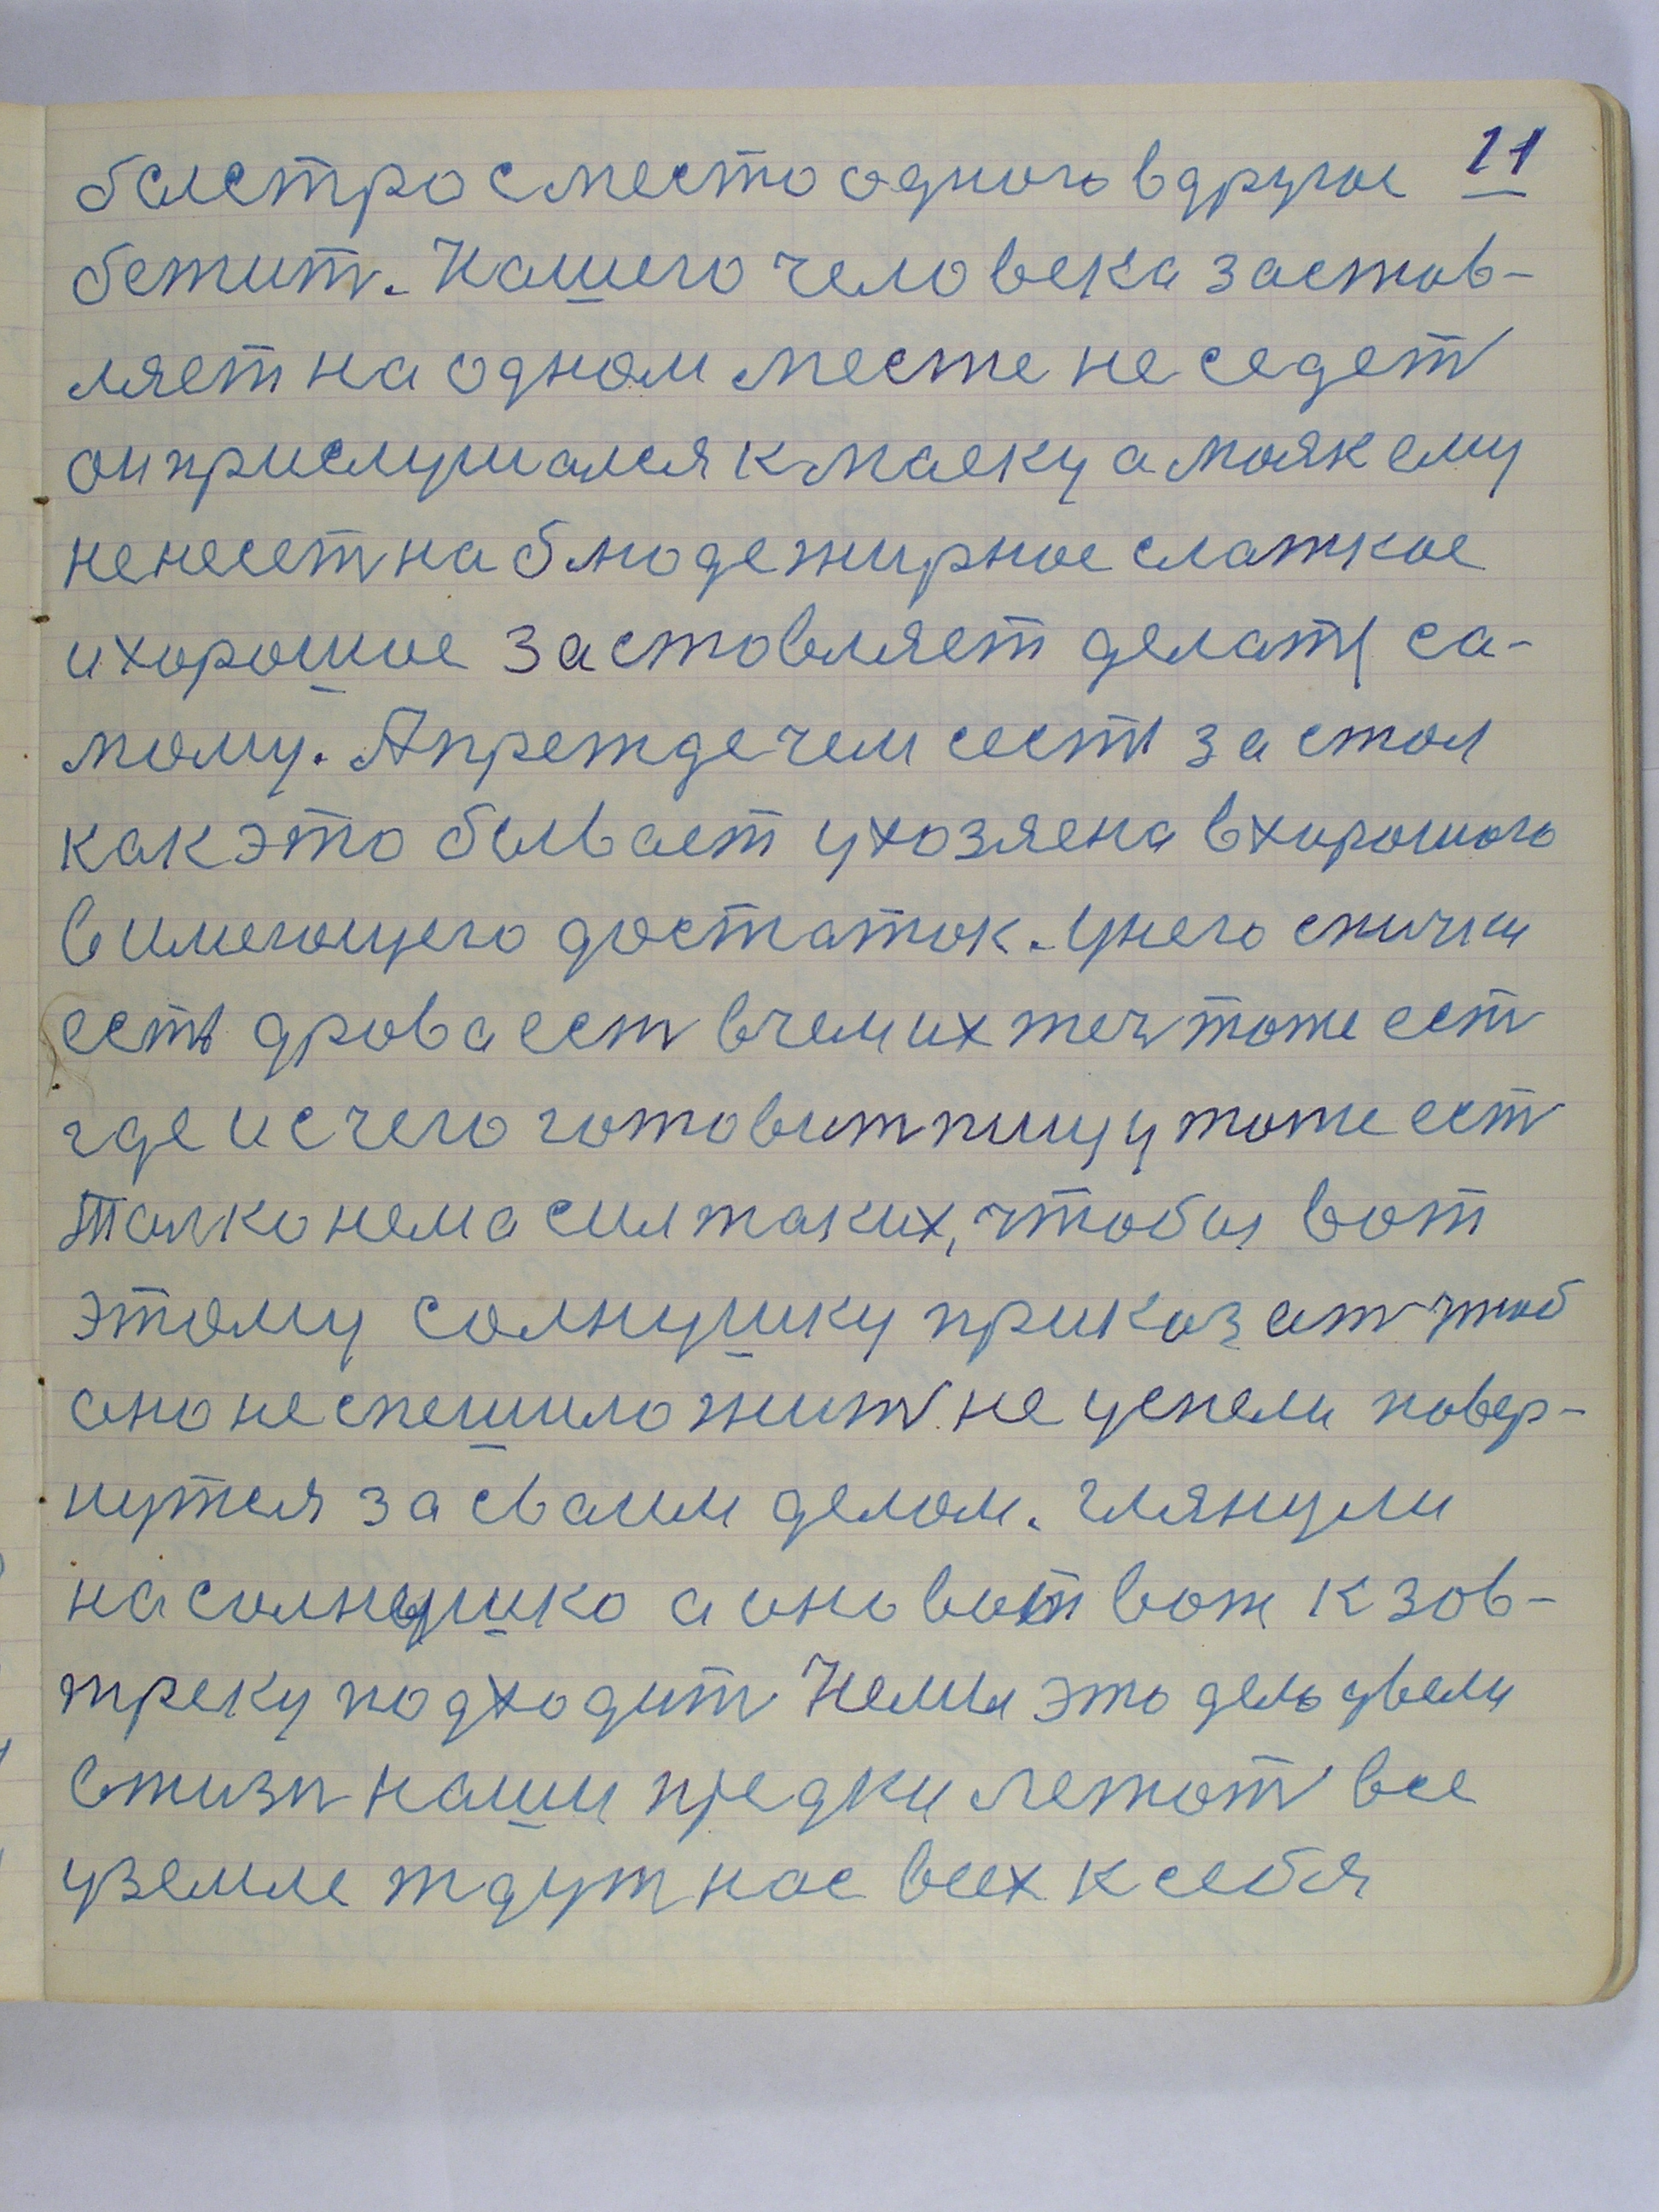 21
быстро с место одного в другое
бежит. Нашего человека застав-
ляет на одном месте не седет
он прислушался к маеку а маяк ему
не несет на блюде жирное слаткое
и хорошое заставляет делать са-
мому. А прежде чем сесть за стол
как это бывает у хозяена в хорошого
в имеющего достаток. У него спички
есть дрова ест в чем их жеч тоже ест
где и с чего готовит пищу тоже ест
Толко нема сил таких, чтобы вот
этому солнушку приказат чтоб
оно не спешило жит не успели повер-
нутся за сваим делом. глянули
на солнушко а оно вот вот к зов-
треку подходит Неми это дело увели
в жизн наши предки лежат все
у земле ждут нас всех к себя